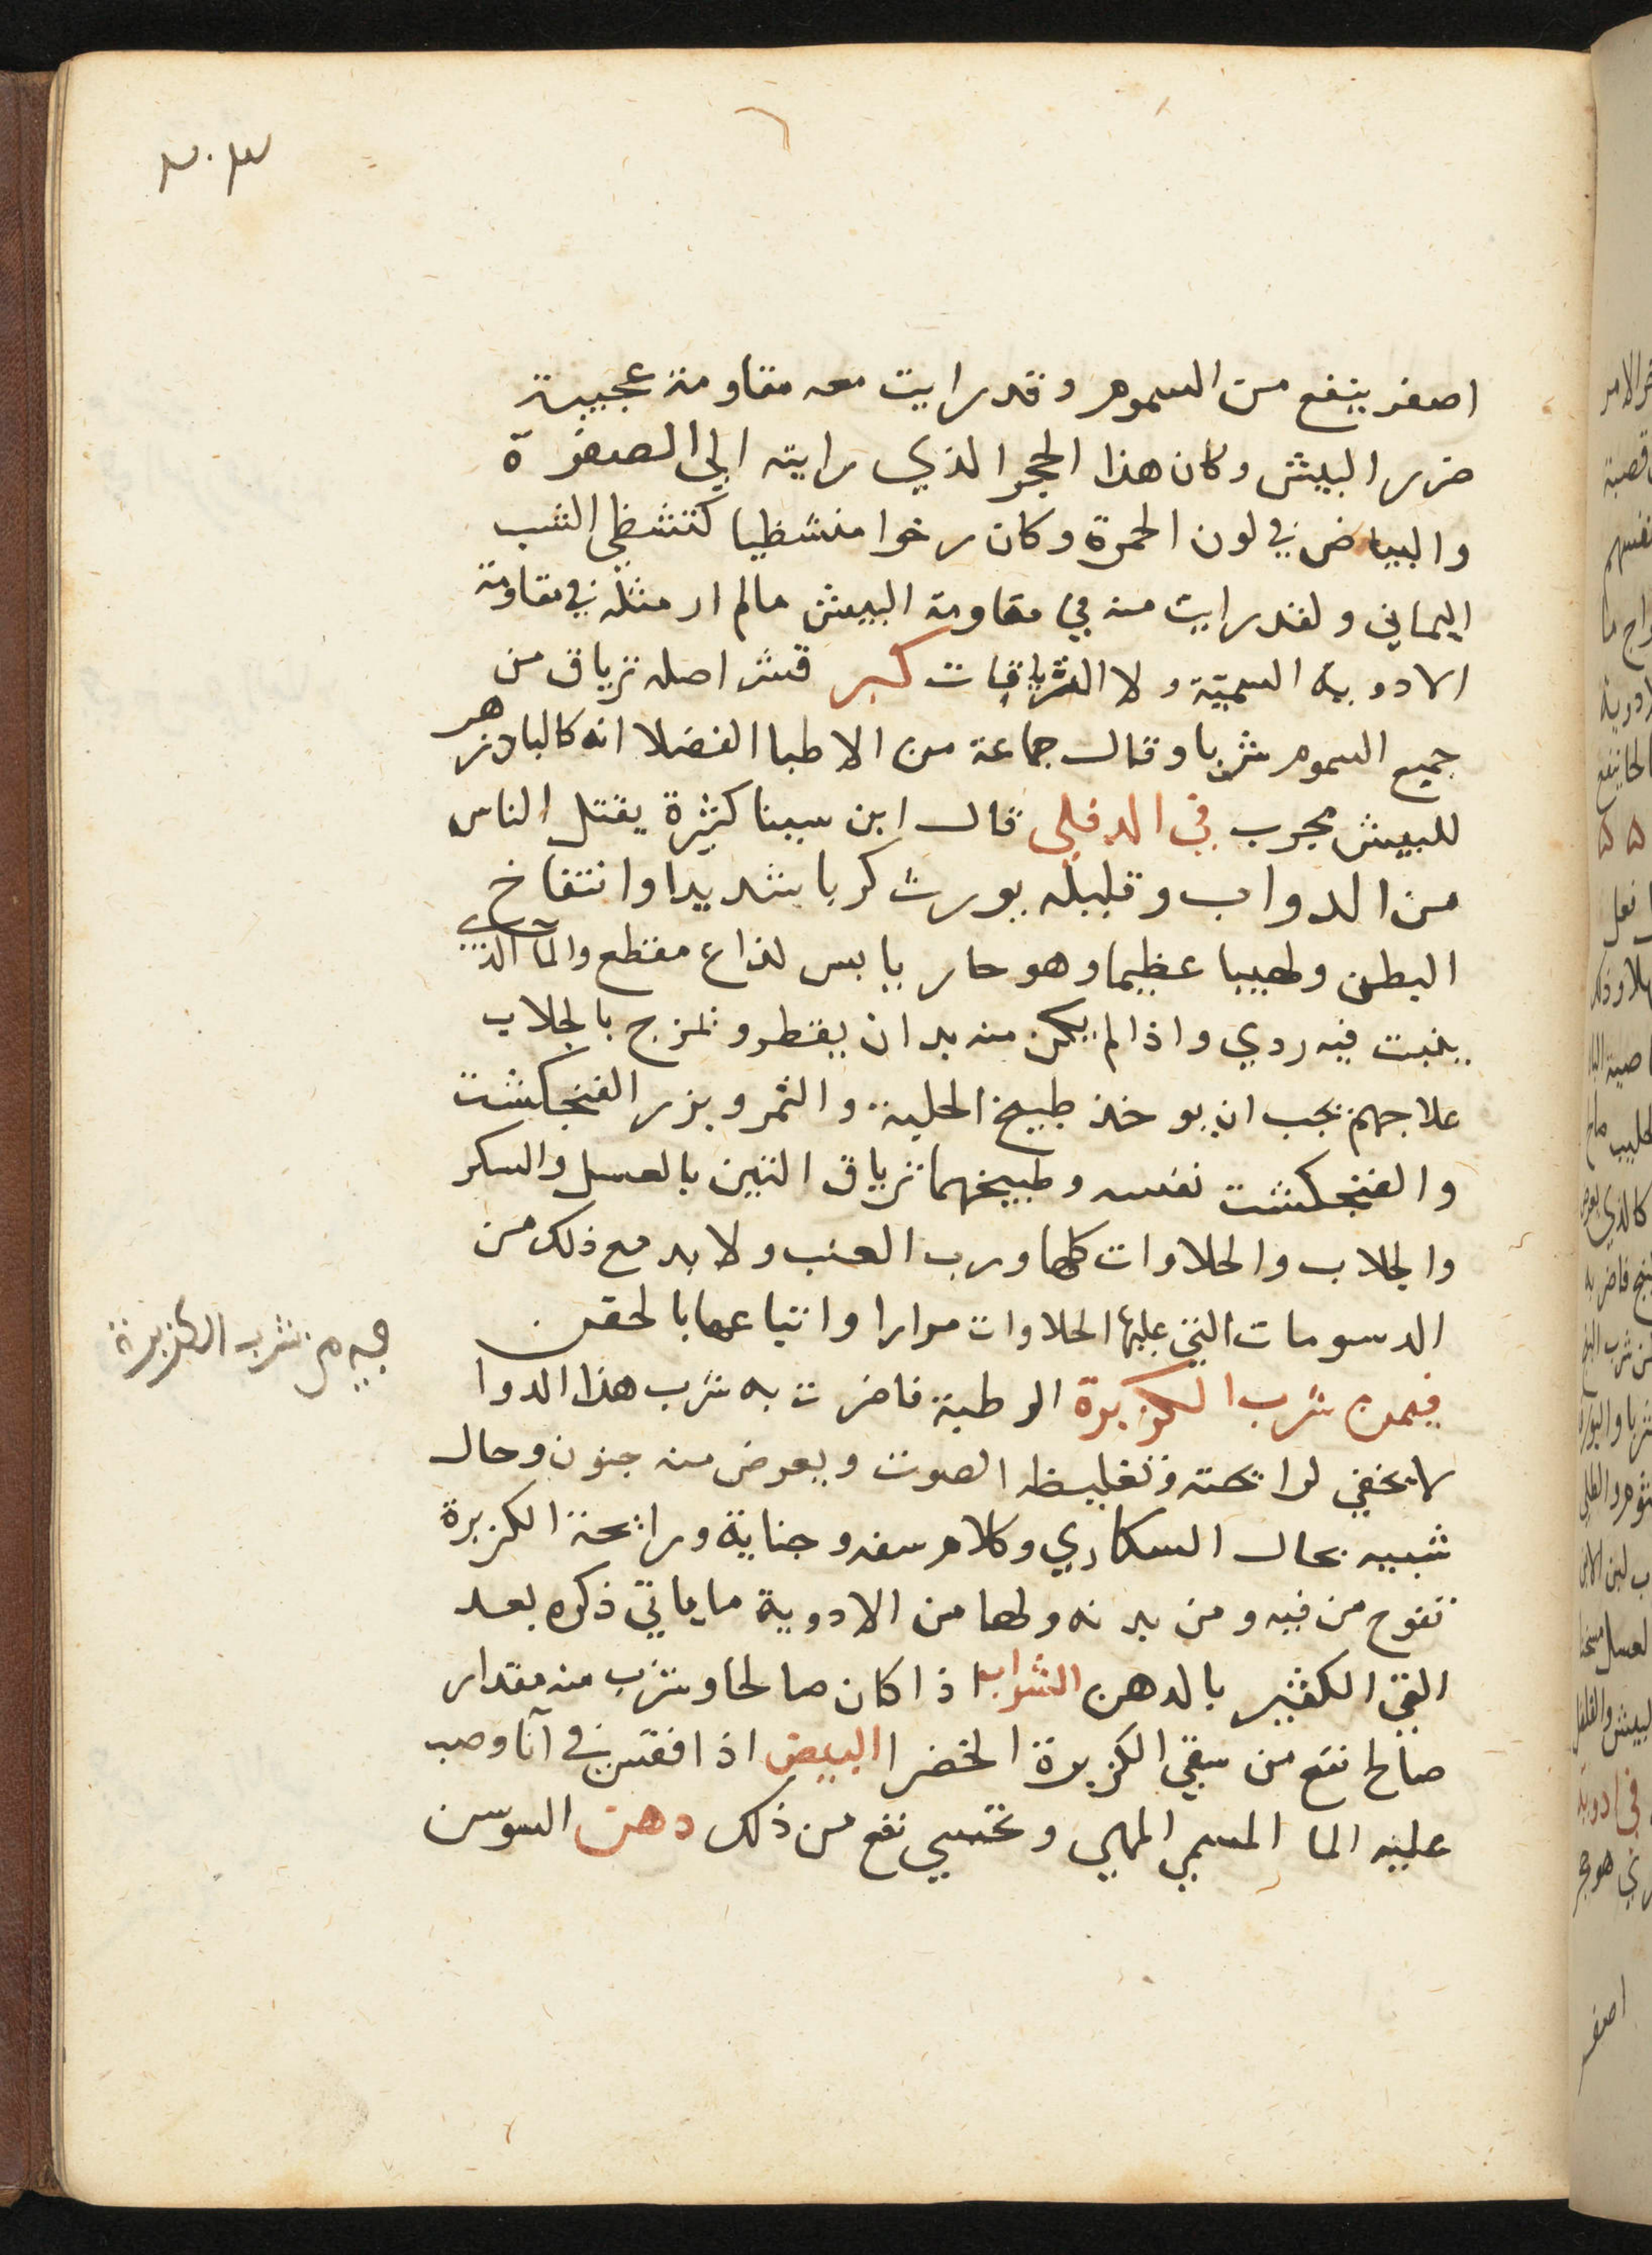 ٢٠٣
اصفر ينفع من السموم وقد رايت معه مقاومة عجيبة
ضرر البيش وكان هذا الحجر الذي رايته الي الصفرة
والبياض في لون الحمرة وكان رخوا منشظيا كتشظي الشب
اليماني ولقد رايت منه في مقاومة البيش مالم ار مثله في مقاومة
الادوية السمية ولا الترياقات كبر قشر اصله ترياق من
جميع السموم شربا وقال جماعة من الاطبا الفضلا انه كالبادزهر
للبيش مجرب في الدفلي قال ابن سينا كثيرة يقتل الناس
من الدواب وقليله يورث كربا شديدا وانتفاخ
البطن ولهيبا عظيما وهو حار يابس لذاع مقطع والمآ الذي
ينبت فيه ردي واذا لم يكن منه بد ان يقطر ويمزج بالجلاب
علاجهم يجب ان يوخذ طبيخ الحلبة والتمر وبزر الفنجكشت
والفنجكشت نفسه وطبيخهما ترياق التين بالعسل والسكر
والجلاب والحلاوات كلها ورب العنب ولا بد مع ذلك من
الدسومات التي عليها الحلاوات مرارا واتباعها بالحقن
فيمن شرب الكزبرة الرطبة فاضرت به شرب هذا الدوا
لا يخفي لرايحته وتغليظه الصوت ويعرض منه جنون وحال
شبيه بحال السكاري وكلام سفه وجناية ورائحة الكزبرة
تفوح من فيه ومن بدنه ولها من الادوية ما ياتي ذكره بعد
القي الكثير بالدهن الشراب اذا كان صالحا وشرب منه مقدار
صالح نفع من سقي الكزبرة الخضرا البيض اذا فقس في آنا وصب
عليه الما المسمي الملحي وتحسي نفع من ذلك دهن السوسن
فيمن شرب الكزبرة